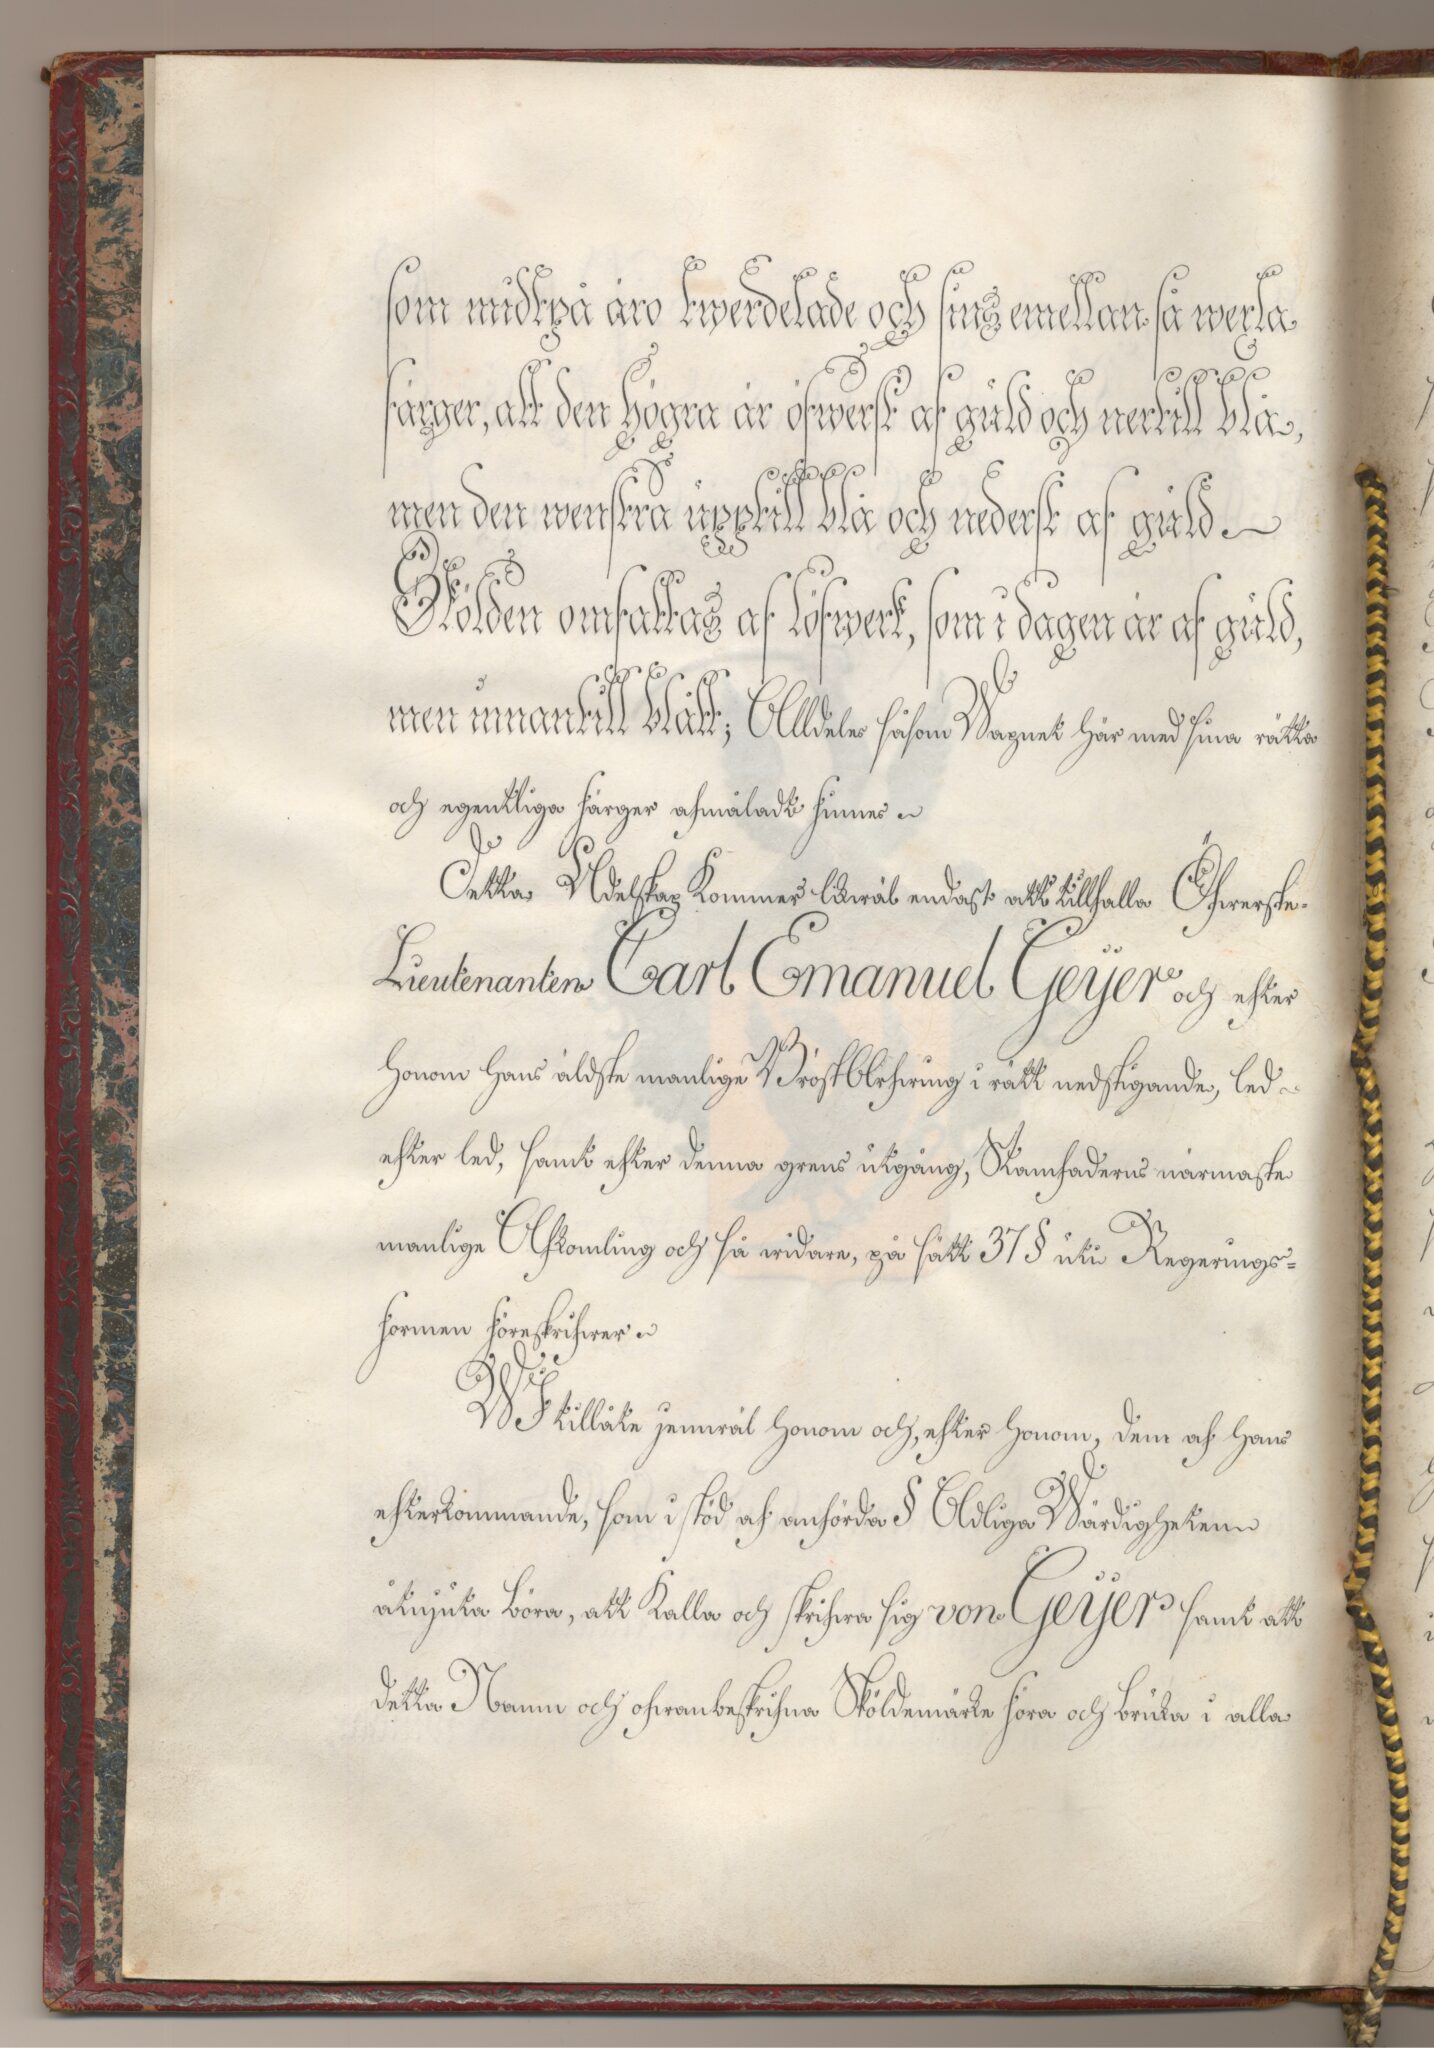 som midtpå äro twerdelade och sins emellan så wexla
färger, att den högra är öfwerst af guld och nertill blå,
men den wenstra upptill blå och nederst af guld.
Skölden omfattas af löfwerk, som i dagen är af guld,
men innantill blått; Alldeles såsom Wapnet här med sina rätta
och egentliga färger afmåladt finnes.
Detta Adelskap kommer likwäl endast att tillfalla Öfwerste-
Lieutenanten Carl Emanuel Geijer och efter
honom hans äldste manlige BröstArfwing i rätt nedstigande led
efter led, samt efter denna grens utgång, Stamfaderns närmaste
manlige Afkomling och så widare, på sätt 37 § uti Regerings-
formen föreskrifwer.
WI tillåte jemwäl honom och, efter honom, dem af hans
efterkommande, som i stöd af anförda § Adliga Wärdigheten
åtnjuta böra, att kalla och skrifwa sig von Geijer samt att
detta Namn och ofwanbeskrifna Sköldemärke föra och bruka i alla